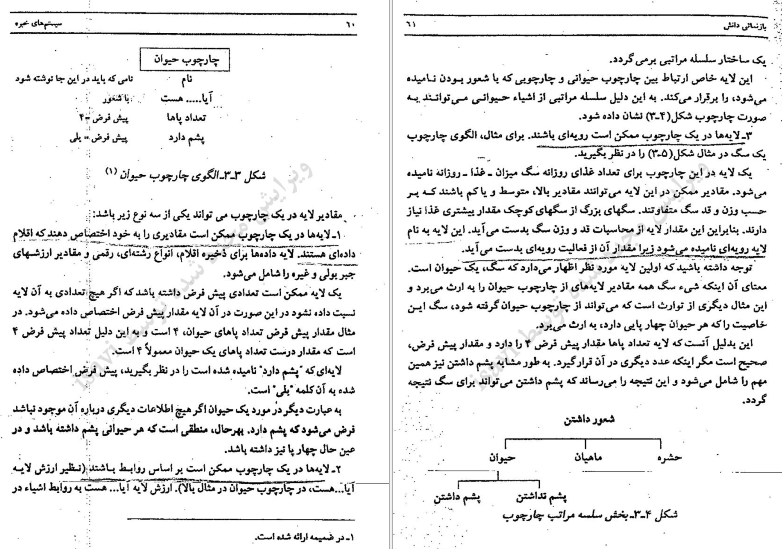 ۶۰ سیستم‌های خبره
چارچوب حیوان
نام نامی که باید در این جا نوشته شود
آیا..... هست با شعور
تعداد پاها پیش فرض=۴
پشم دارد پیش فرض= بلی
شکل ۳ـ۳ـ الگوی چارچوب حیوان (۱)
مقادیر لایه در یک چارچوب می تواند یکی از سه نوع زیر باشد:
۱ـ لایه‌ها در یک چارچوب ممکن است مقادیری را به خود اختصاص دهند که اقلام
داده‌ای هستند. لایه داده‌ها برای ذخیره اقلام، انواع رشته‌ای، رقمی و مقادیر ارزشهای
جبر بولی و غیره را شامل می‌شود.
یک لایه ممکن است تعدادی پیش فرض داشته باشد که اگر هیچ تعدادی به آن لایه
نسبت داده نشود در این صورت در آن لایه مقدار پیش فرض اختصاص داده می‌شود. در
مثال مقدار پیش فرض تعداد پاهای حیوان، ۴ است و به این دلیل تعداد پیش فرض ۴
است که مقدار درست تعداد پاهای یک حیوان معمولاً ۴ است.
لایه‌ای که "پشم دارد" نامیده شده است را در نظر بگیرید، پیش فرض اختصاص داده
شده به آن کلمه "بلی" است.
به عبارت دیگر در مورد یک حیوان اگر هیچ اطلاعات دیگری درباره آن موجود نباشد
فرض می‌شود که پشم دارد. بهرحال، منطقی است که هر حیوانی پشم داشته باشد و در
عین حال چهار پا نیز داشته باشد.
۲ـ لایه‌ها در یک چارچوب ممکن است بر اساس روابط باشند (نظیر ارزش لایه
آیا...هست، در چارچوب حیوان در مثال بالا). ارزش لایه آیا... هست به روابط اشیاء در
۱ـ در ضمیمه ارائه شده است.
بازنمائی دانش ۶۱
یک ساختار سلسله مراتبی برمی‌گردد.
این لایه خاص ارتباط بین چارچوب حیوانی و چارچوبی که با شعور بودن نامیده
می‌شود، را برقرار می‌کند. به این دلیل سلسله مراتبی از اشیاء حیوانی می‌توانند به
صورت چارچوب شکل(۴ـ۳) نشان داده شود.
۳ـ لایه‌ها در یک چارچوب ممکن است رویه‌ای باشند. برای مثال، الگوی چارچوب
یک سگ در مثال شکل(۵ـ۳) را در نظر بگیرید.
یک لایه در این چارچوب برای تعداد غذای روزانه سگ میزان ـ غذا ـ روزانه نامیده
می‌شود. مقادیر ممکن در این لایه می‌توانند مقادیر بالا، متوسط و یا کم باشند که بر
حسب وزن و قد سگ متفاوتند. سگهای بزرگ از سگهای کوچک مقدار بیشتری غذا نیاز
دارند. بنابراین این مقدار لایه از محاسبات قد و وزن سگ بدست می‌آید. این لایه به نام
لایه رویه‌ای نامیده می‌شود زیرا مقدار آن از فعالیت رویه‌ای بدست می‌آید.
توجه داشته باشید که اولین لایه مورد نظر اظهار می‌دارد که سگ، یک حیوان است.
معنای آن اینکه شیء سگ همه مقادیر لایه‌های از چارچوب حیوان را به ارث می‌برد و
این مثال دیگری از توارث است که می‌تواند از چارچوب حیوان گرفته شود، سگ این
خاصیت را که هر حیوان چهار پایی دارد، به ارث می‌برد.
این بدلیل آنست که لایه تعداد پاها مقدار پیش فرض ۴ را دارد و مقدار پیش فرض،
صحیح است مگر اینکه عدد دیگری در آن قرار گیرد. به طور مشابه پشم داشتن نیز همین
مهم را شامل می‌شود و این نتیجه را می‌رساند که پشم داشتن می‌تواند برای سگ نتیجه
گردد.
شعور داشتن
حشره ماهیان حیوان
پشم نداشتن پشم داشتن
شکل ۴ـ۳ـ بخش سلسه مراتب چارچوب